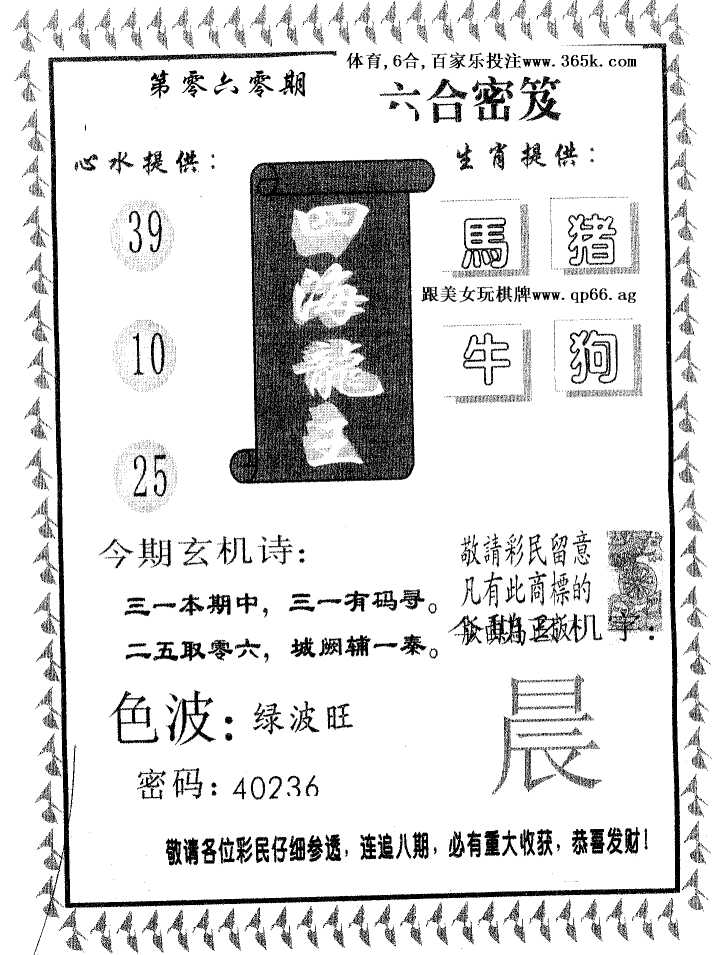 体育,6合,百家乐投注www.365k.com
第零六零期
六合密笈
心水提供：
生肖提供：
39
10
25
四海龍王
馬 猪
跟美女玩棋牌www.qp66.ag
牛 狗
今期玄机诗：
三一本期中，三一有码寻。
二五取零六，城阙辅一秦。
敬請彩民留意
凡有此商標的
机字：
晨
色波：绿波旺
密码：40236
敬请各位彩民仔细参透，连追八期，必有重大收获，恭喜发财！